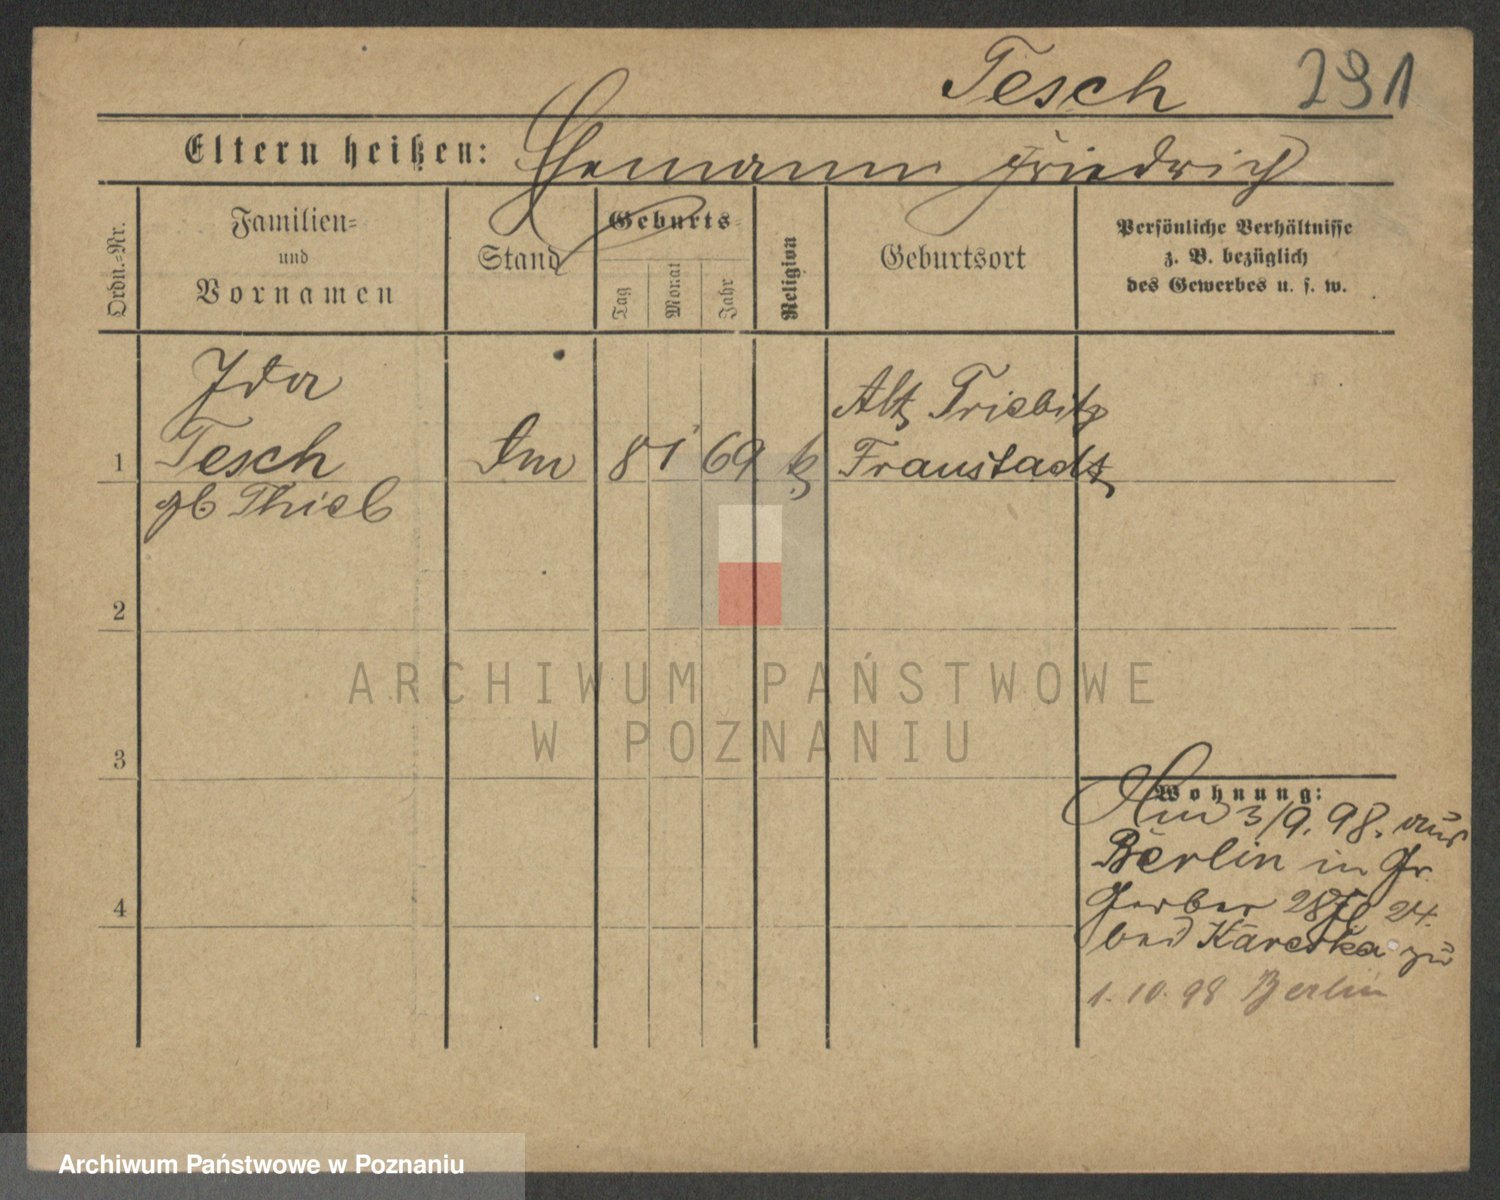 Tesch 291
Eltern heißen: Ehemann Friedrich
Ordn.-Nr.
Familien-
und
Vornamen
Stand
Geburts-
Tag
Monat
Jahr
Religion
Geburtsort
Persönliche Verhältnisse
z. B. bezüglich
des Gewerbes u. s. w.
Ida
1 Tesch 8 1 69 k Alt Triebitz
Fraustadt
gb Thieb
2
3
4
Wohnung:
3/9. 98. aus
Berlin in Gr.
Gerber 24.
bei zu
1. 10. 98 Berlin
ARCHIWUM PAŃSTWOWE
W POZNANIU
Archiwum Państwowe w Poznaniu